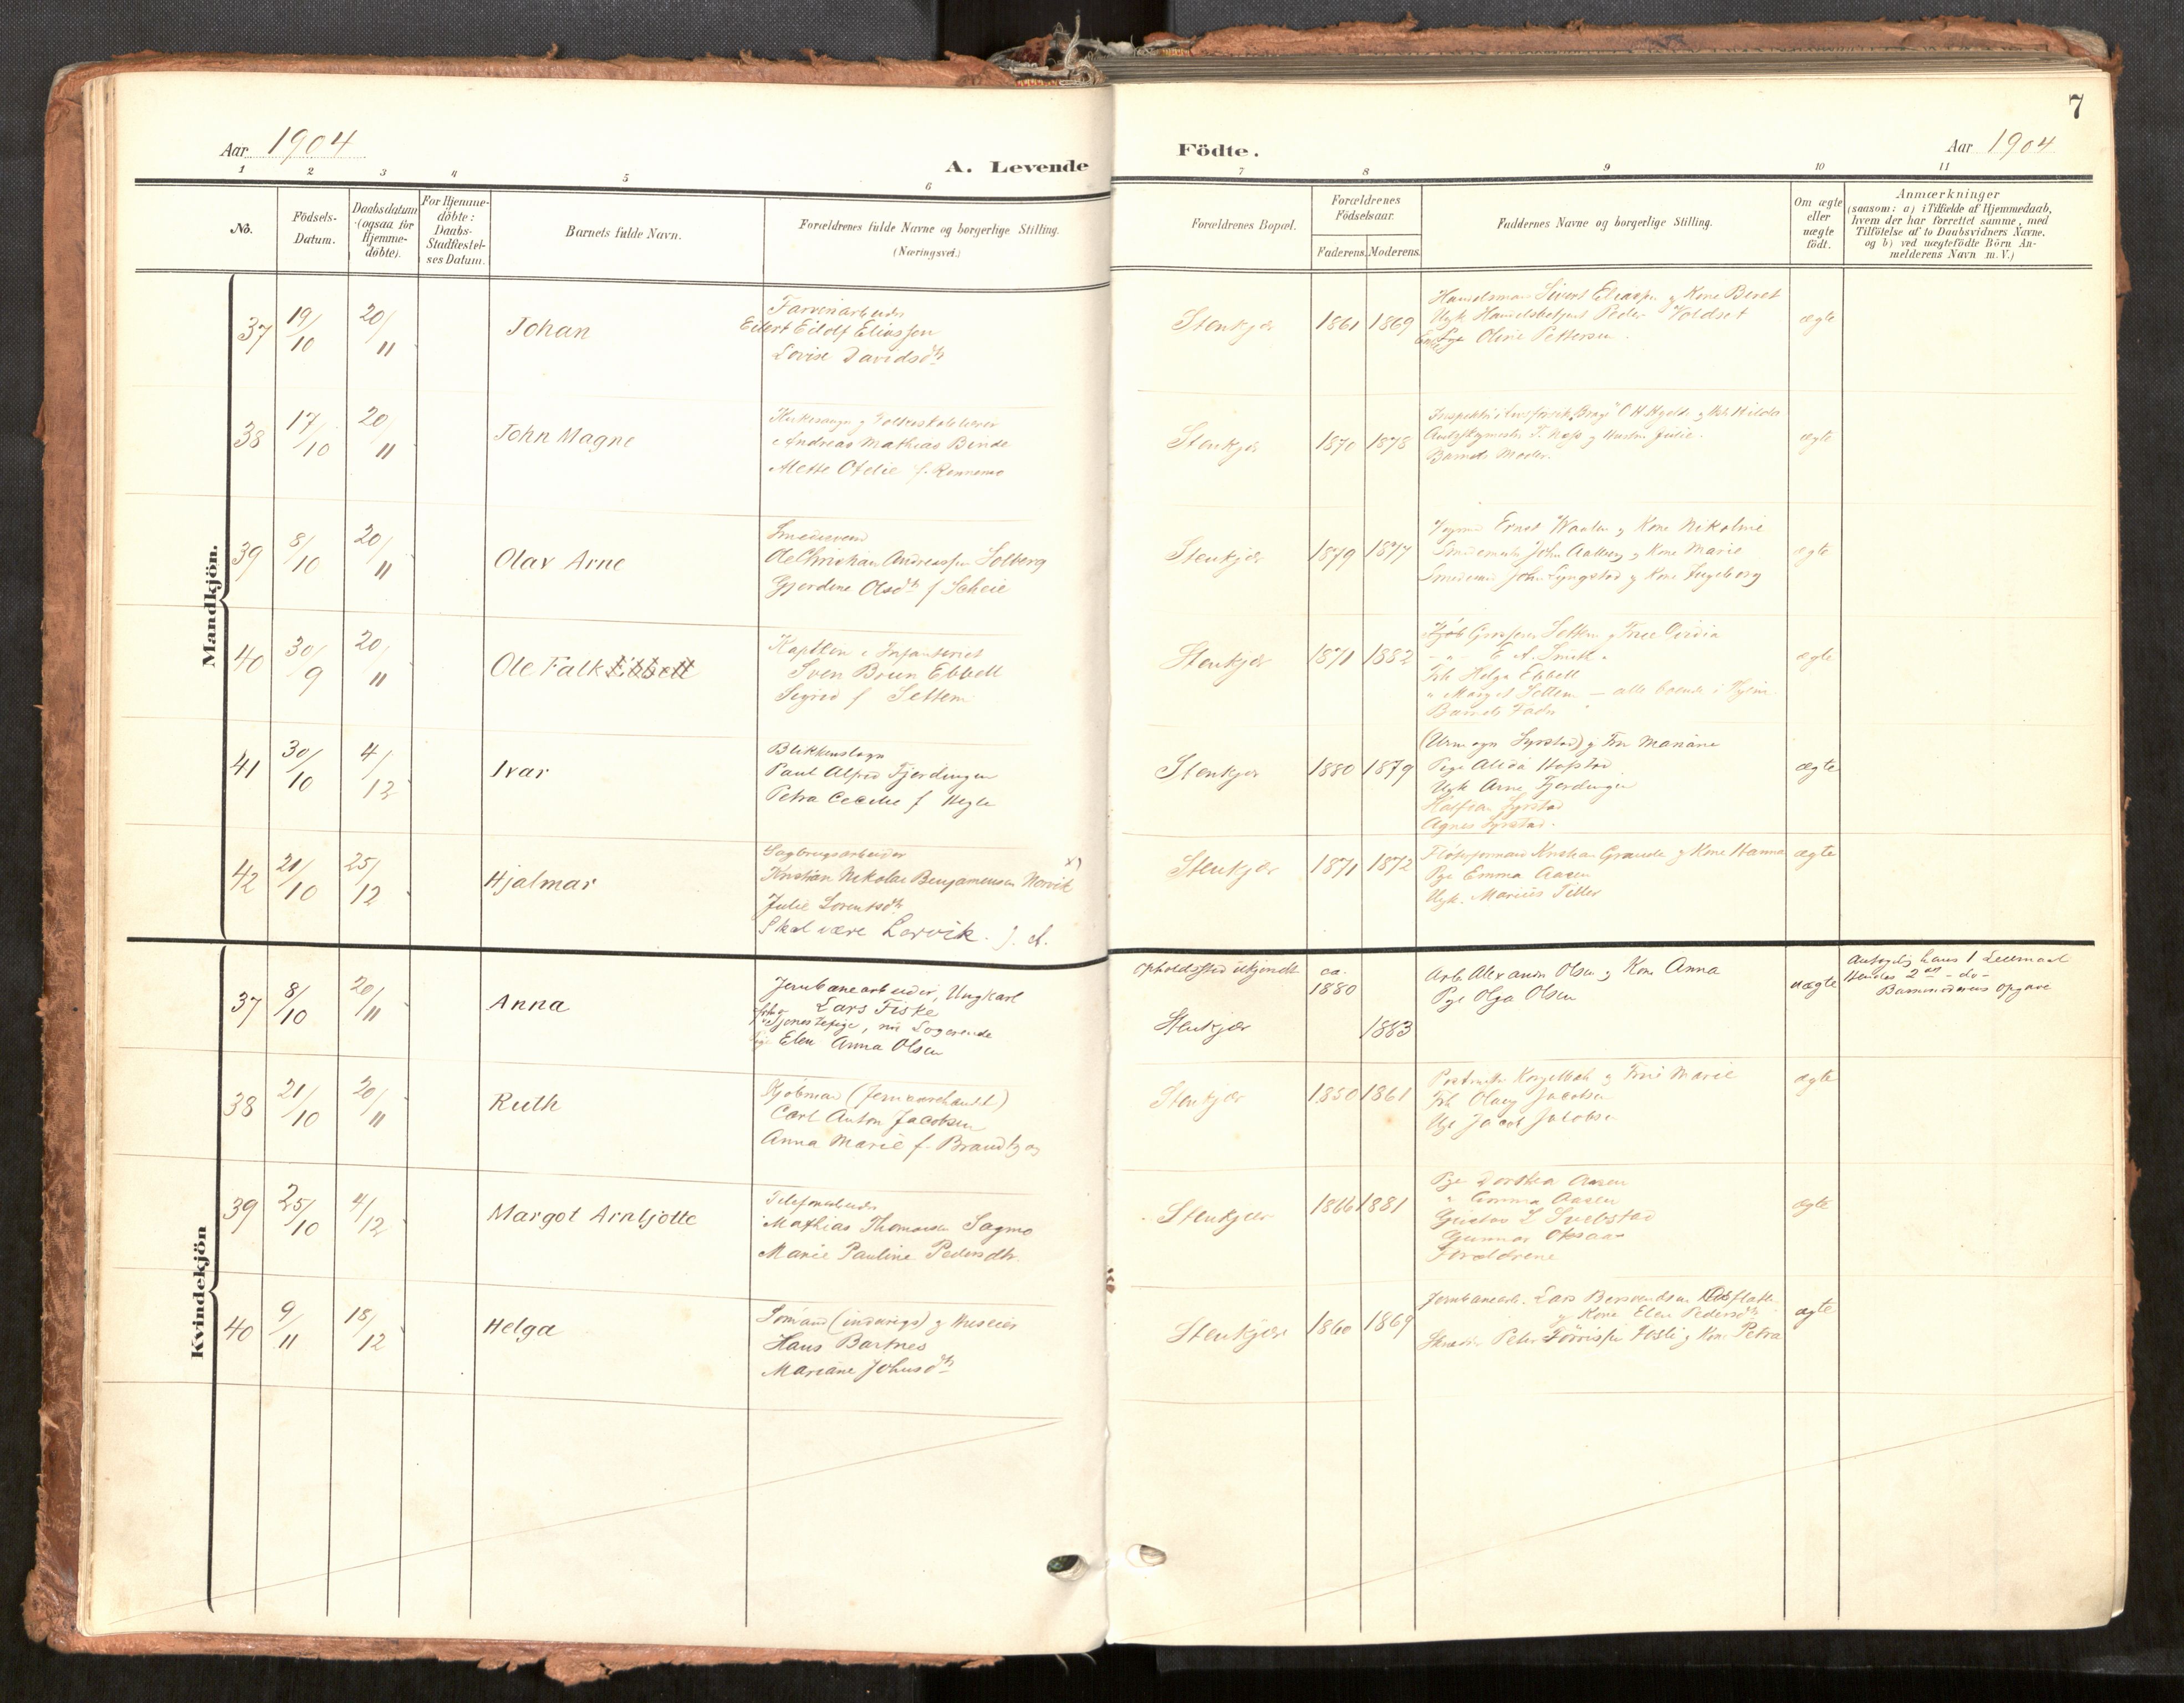 7
Aar 1904
A. Levende
Födte.
Aar 1904
1 2 3 4 5 6 7 8 9 10 11
No.
Födsels-
Datum.
Daabsdatum
(ogsaa for
Hjemme-
döbte).
For Hjemme-
döbte:
Daabs-
Stadfæstel-
ses Datum.
Barnets fulde Navn.
Forældrenes fulde Navne og borgerlige Stilling.
(Næringsvei.)
Forældrenes Bopæl.
Forældrenes
Födselsaar.
Faderens. Moderens.
Faddernes Navne og borgerlige Stilling.
Om ægte
eller
uægte
födt.
Anmærkninger
(saasom: a) i Tilfælde af Hjemmedaab,
hvem der har forrettet samme, med
Tilföielse af to Daabsvidners Navne,
og b) ved uægtefödte Börn An-
melderens Navn m. V.)
Mandkjön.
37
19/10
20/11
Johan
Eilert Eidolf Eliassen
Lovise Davidsdtr
Stenkjær
1861 1869
Handelsmand Sivert Eliassen og Kone Beret
Ungk Handelsbetjent Peder Voldset
Pige Oline Pettersen.
ægte
38
17/10
20/11
John Magne
Kirkesanger og Folkeskolelærer
Andreas Mathias Binde
Mette Otelie f. Rennemo
Stenkjær
1870 1878
og Hustru Julie.
Barnets Moder.
ægte
39
8/10
20/11
Olav Arne
Smedesvend
Ole Christian Andreassen Solberg
Gjordine Olsdtr f Scheie
Stenkjær
1879 1877
Ernst Waalen og Kone Nikoline
Smedemester John Aalberg og Kone Marie
Smedsvend John Lyngstad og Kone Ingeborg
ægte
40
30/9
20/11
Ole Falk Ebbell
Kaptein i Infanteriet
Sven Brun Ebbell
Sigrid f Settem
Stenkjær
1871 1882
Settem og Frue
E. A. Smith
Frk Helga Ebbell
" Margit Settem — alle boende i Hjem.
Barnets Fader
ægte
41
30/10
4/12
Ivar
Blikkenslager
Paul Alfred Fjerdingen
Petra Cecilie f Hegle
Stenkjær
1880 1879
(Urmager Syrstad) og Fru Mariane
Pige Alida Hofstad
Ungk Arne Fjerdingen
Halfdan Syrstad
Agnes Syrstad.
ægte
42
21/10
25/12
Hjalmar
Sagbrugsarbeider
Kristian Nikolai Benjaminsen Norvik x)
Julie Lorentsdtr
Skal være Lorvik. J. A.
Stenkjær
1871 1872
Fløterformand Kristian Grande og Kone Hanna
Pige Emma Aasen
Ungk. Marius Tiller
ægte
Kvindekjön
37
8/10
20/11
Anna
Jernbanearbeider, Ungkarl
Lars Fiske
Tjenestepige, nu Logerende
Pige Elen Anna Olsen
Opholdssted ukjendt
Stenkjær
ca. 1880
1883
Arb Alexander Olsen og Kone Anna
Pige Olga Olsen
uægte
Antagelig hans 1 Leiermaal
Hendes 2det - do -
Barnemoderens Opgave
38
21/10
20/11
Ruth
Kjöbmand (Jernvarehandl)
Carl Anton Jacobsen
Anna Marie f. Brandtzæg
Stenkjær
1850 1861
og Frue Marie
Frk Olaug Jacobsen
Ungk Jacob Jacobsen
ægte
39
25/10
4/12
Margot Arnljotte
Telefonarbeider
Mathias Thomassen Sagmo
Marie Pauline Pedersdtr.
Stenkjær
1866 1881
Pige Dorthea Aasen
" Emma Aasen
Gustav L Svebstad
Gunnar
Forældrene
ægte
40
9/11
18/12
Helga
Sömand (indenrigs) og Huseier
Hans Bartnes
Mariane Johnsdtr
Stenkjær
1860 1869
Jernbanearb. Lars Berntsen
og Kone Elen Pedersdtr
Skræder Peter Tørrissen Fosli og Kone Petra
ægte